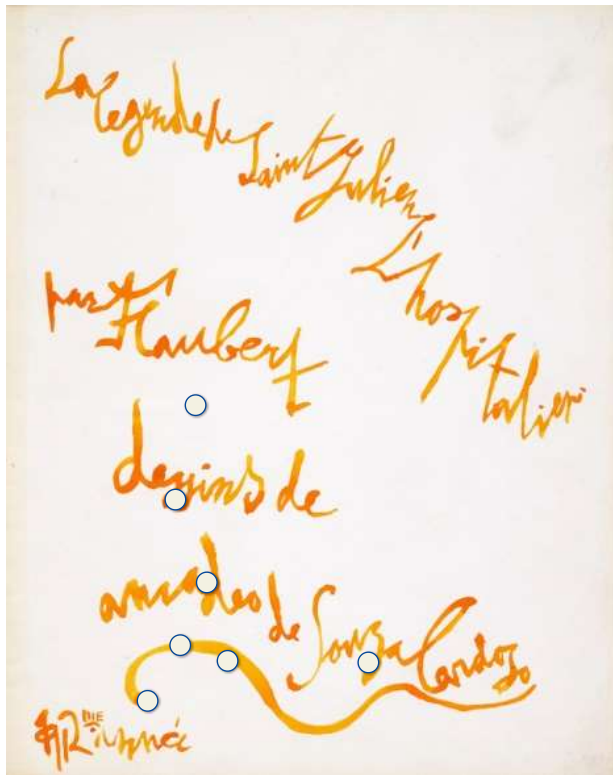 La Legende de
Saint Julien
L'hospitalier
par Flaubert
dessins de
amadeo de Souza Cardozo